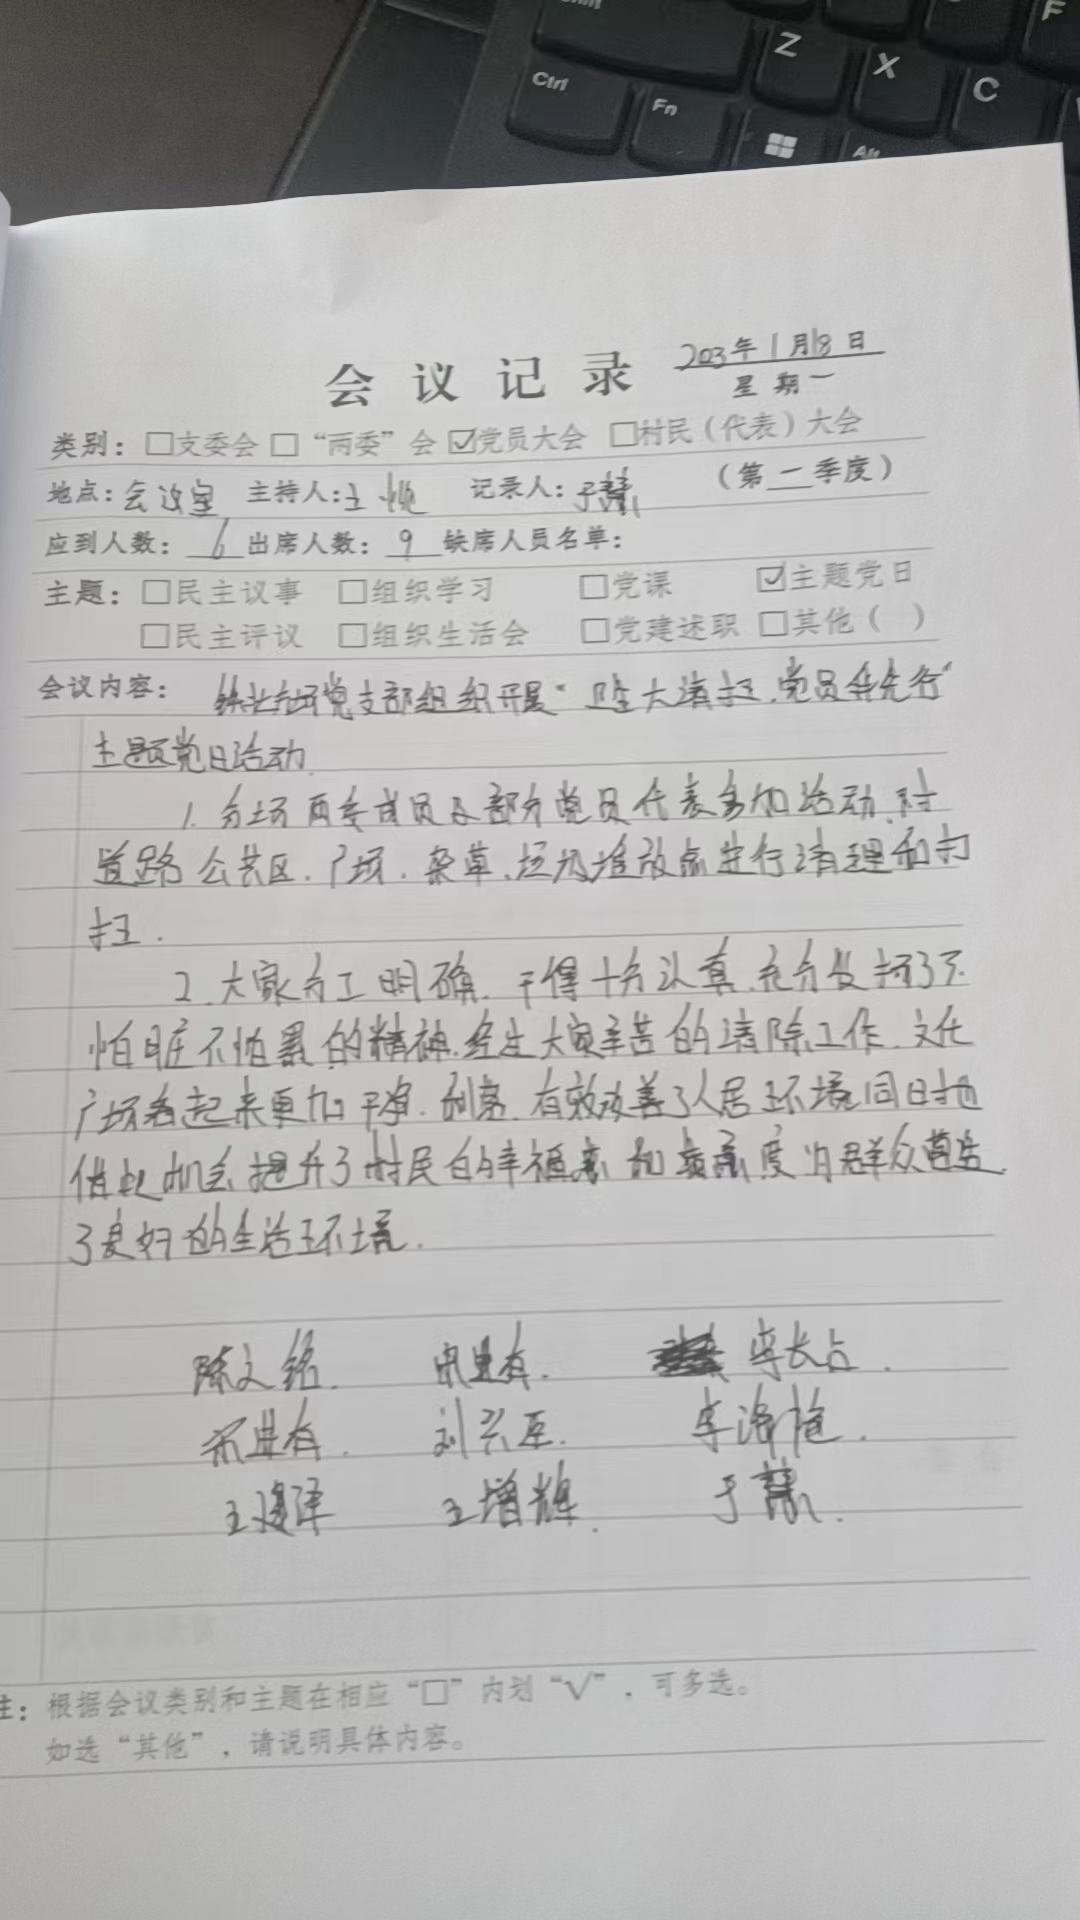 Shift
Z
X
C
F
Ctrl
Fn
Alt
会议记录 203年1月18日
星期一
类别：□支委会 □“两委”会 ☑党员大会 □村民（代表）大会
地点：会议室 主持人：王 记录人：于慧 （第一季度）
应到人数：6 出席人数：9 缺席人员名单：
主题：□民主议事 □组织学习 □党课 ☑主题党日
□民主评议 □组织生活会 □党建述职 □其他（ ）
会议内容： 党支部组织开展“卫生大清扫，党员争先行”
主题党日活动.
1. 分场两委成员及部分党员代表参加活动，对
道路公共区、广场、杂草、垃圾堆放点进行清理和打
扫.
2. 大家分工明确，干得十分认真，充分发扬了不
怕脏不怕累的精神，经过大家辛苦的清除工作，文化
广场看起来更加干净、利落，有效改善了人居环境同时也
借此机会提升了村民的幸福感和满意度为群众营造
了良好的生活环境.
陈文铭. 李长占.
刘兴 . 李海 .
王 王增辉. 于慧.
注：根据会议类别和主题在相应“□”内划“√”，可多选。
如选“其他”，请说明具体内容。